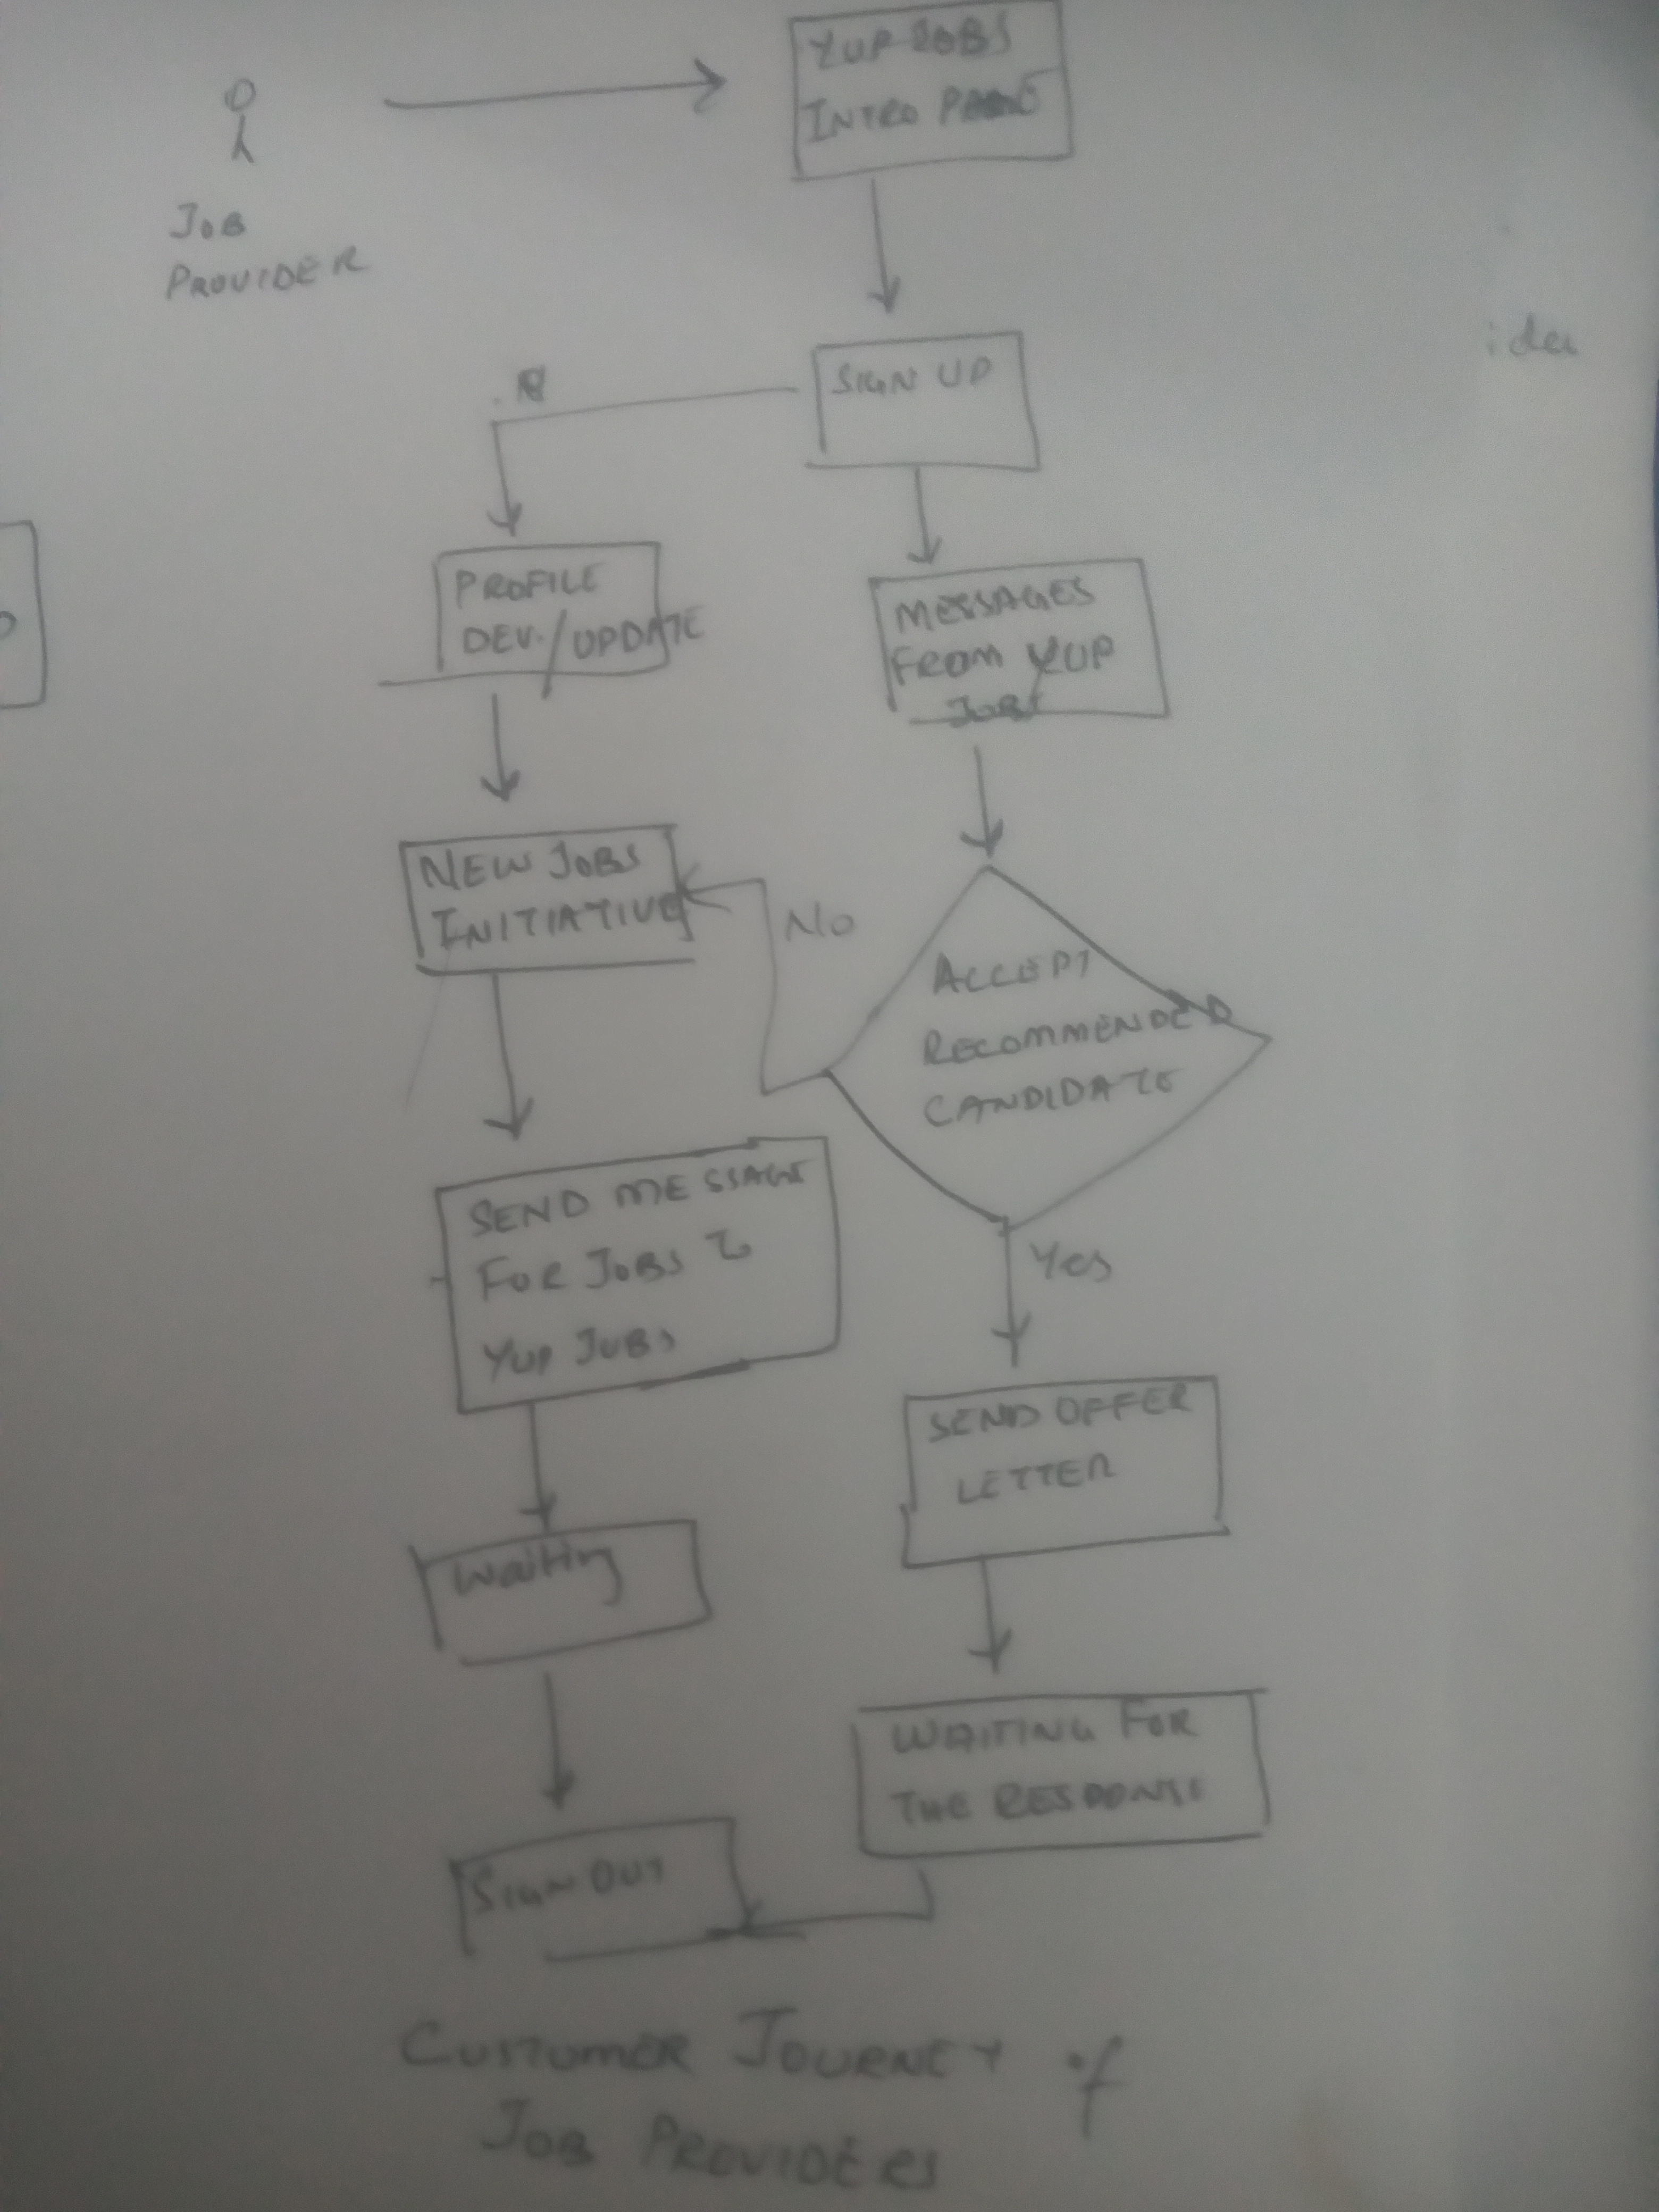 YUP JOBS
INTRO PAGE
JOB
PROVIDER
idea
SIGN UP
PROFILE
DEV./UPDATE
MESSAGES
FROM YUP
JOBS
NEW JOBS
INITIATIVE
No
ACCEPT
RECOMMENDED
CANDIDATE
SEND MESSAGE
FOR JOBS TO
YUP JOBS
Yes
SEND OFFER
LETTER
Waiting
WAITING FOR
THE RESPONSE
SIGN OUT
CUSTOMER JOURNEY of
JOB PROVIDERS